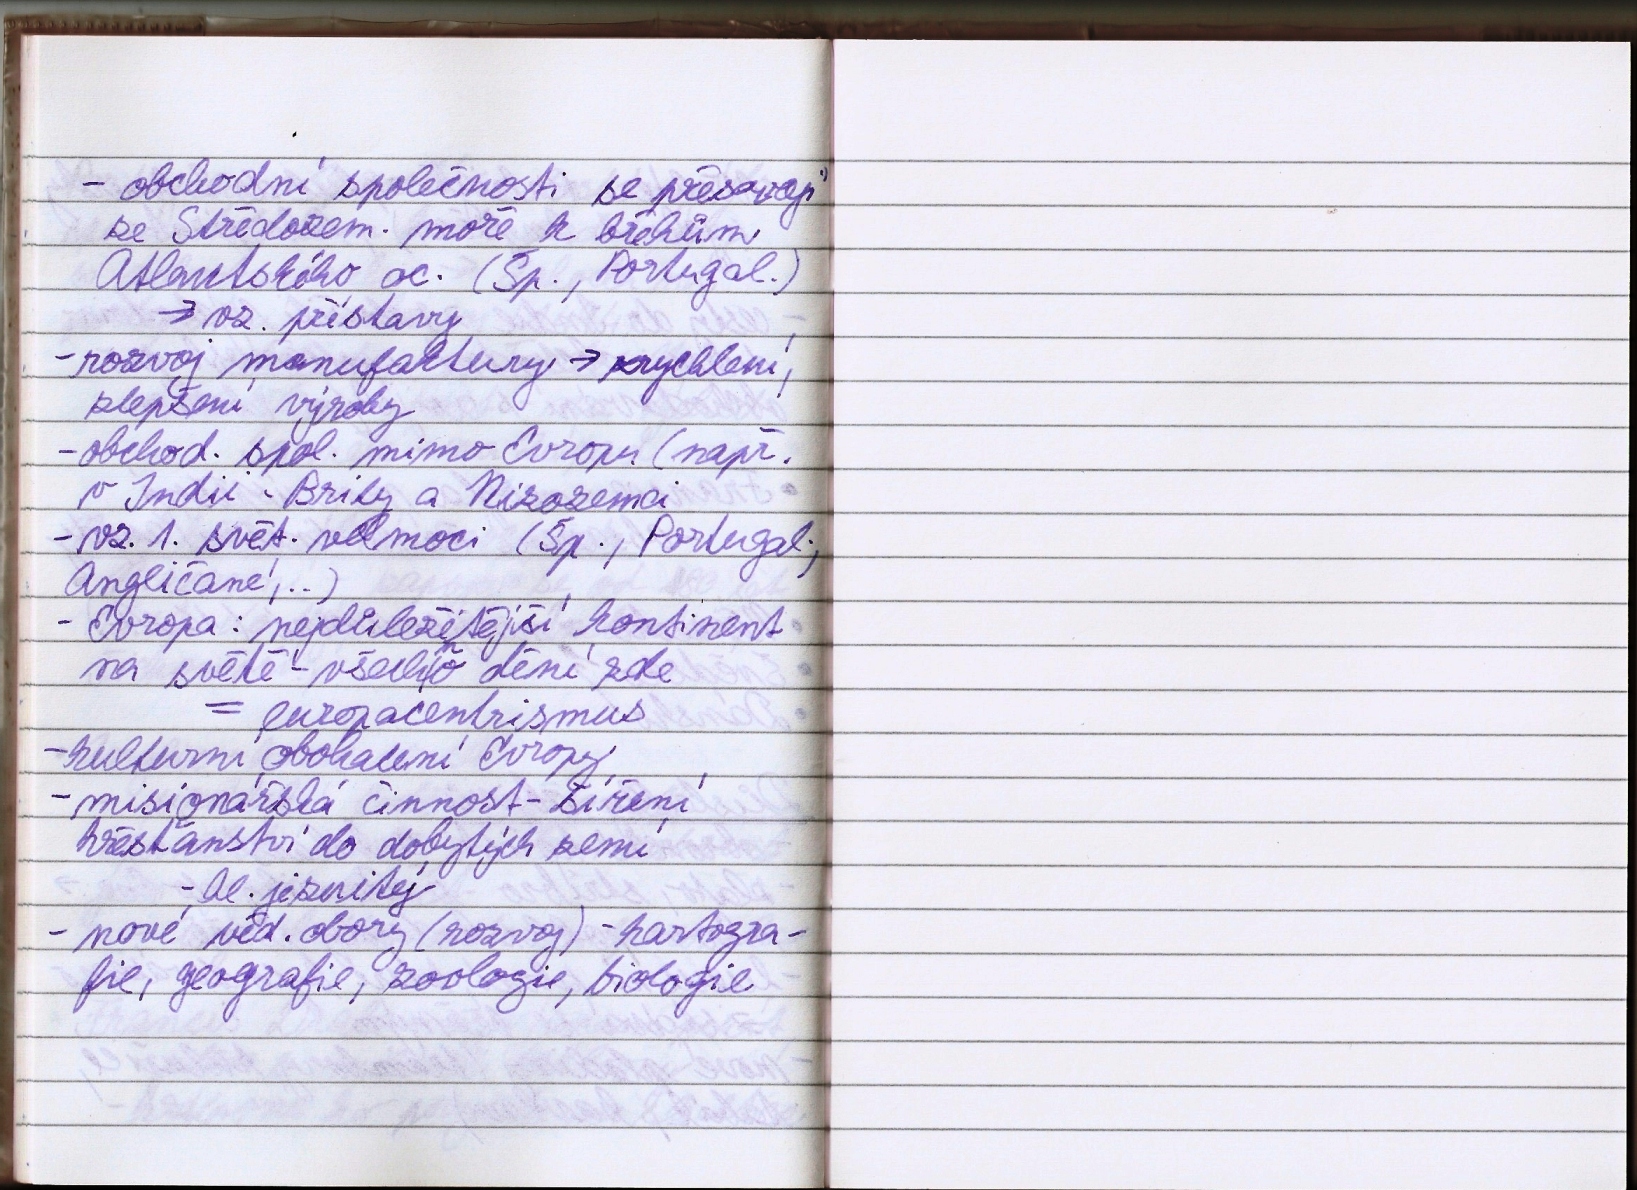 - obchodní společnosti se přesouvají
ze Středozem. moře k břehům
Atlantského oc. (Šp., Portugal.)
→ vz. přístavy
- rozvoj manufaktury → zrychlení,
zlepšení výroby
- obchod. spol. mimo Evropu (např.
v Indii - Brity a Nizozemci
- vz. 1. svět. velmoci (Šp., Portugal.,
Angličané,..)
- Evropa: nejdůležitější kontinent
na světě - všechno dění zde
= europacentrismus
- kulturní obohacení Evropy
- misionářská činnost - šíření
křesťanství do dobytých zemí
- hl. jezuité
- nové věd. obory (rozvoj) - kartogra-
fie, geografie, zoologie, biologie